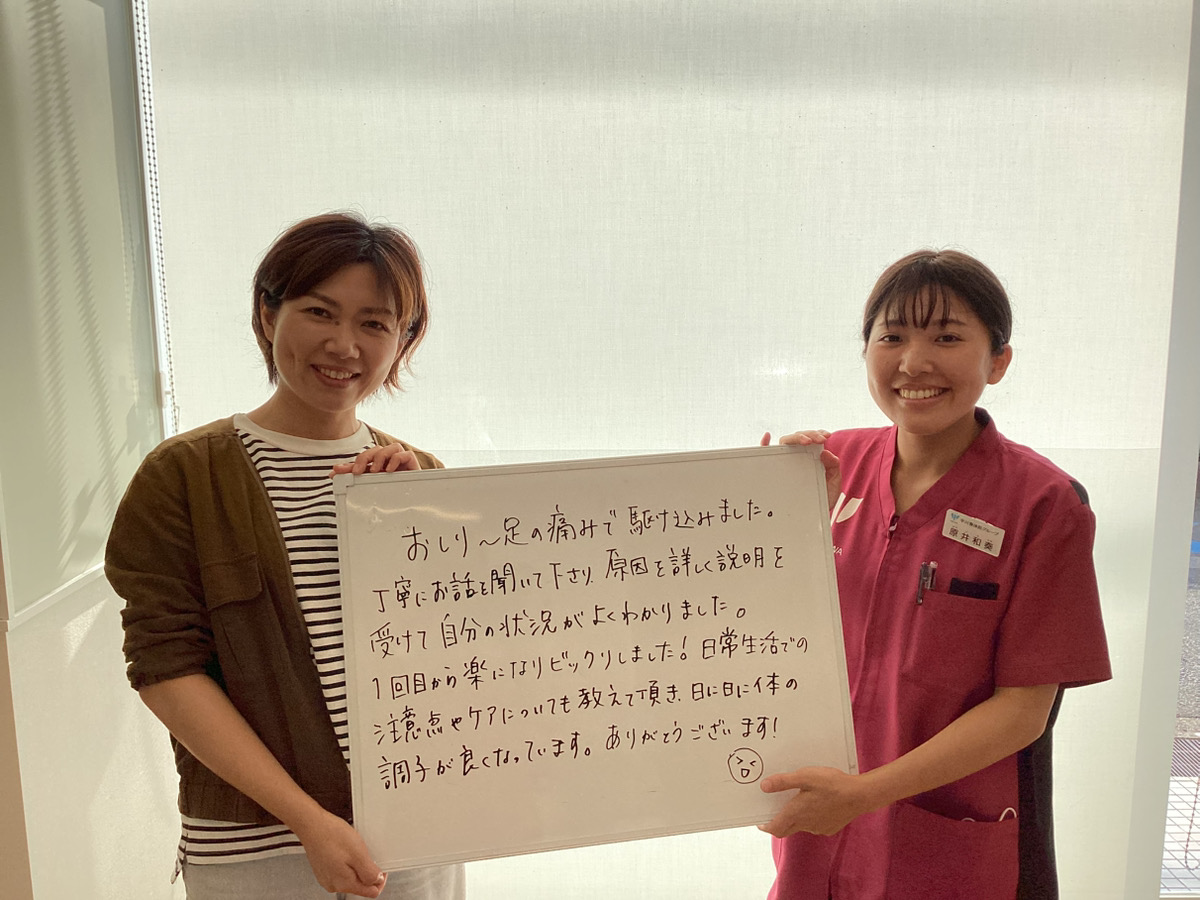 おしり〜足の痛みで駆け込みました。
丁寧にお話を聞いて下さり、原因を詳しく説明を
受けて自分の状況がよくわかりました。
1回目から楽になりビックリしました！日常生活での
注意点やケアについても教えて頂き、日に日に体の
調子が良くなっています。ありがとうございます！
原井和奏